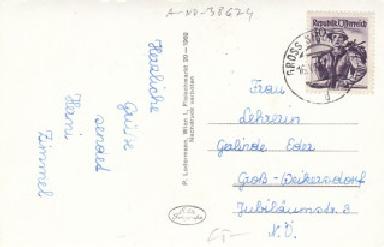 A-ND-38624
Herzliche
Grüße
sendet
Herni
Zimmel
P. Ledermann, Wien I, Fleischmarkt 20 - 1960
Nachdruck verboten
Republik Österreich
GROSS
Frau
Lehrerin
Gerlinde Eder
Groß-Weikersdorf
Jubiläumstr. 3
N.Ö.